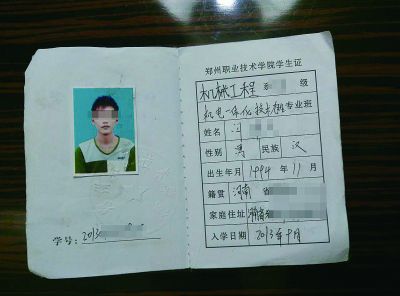 学号: 2013
郑州职业技术学院学生证
机械工程系 级
机电一体化技术 专业 班
姓名 闫
性别 男 民族 汉
出生年月 1994 年 11 月
籍贯 河南 省
家庭住址 河南省
入学日期 2013 年 9 月